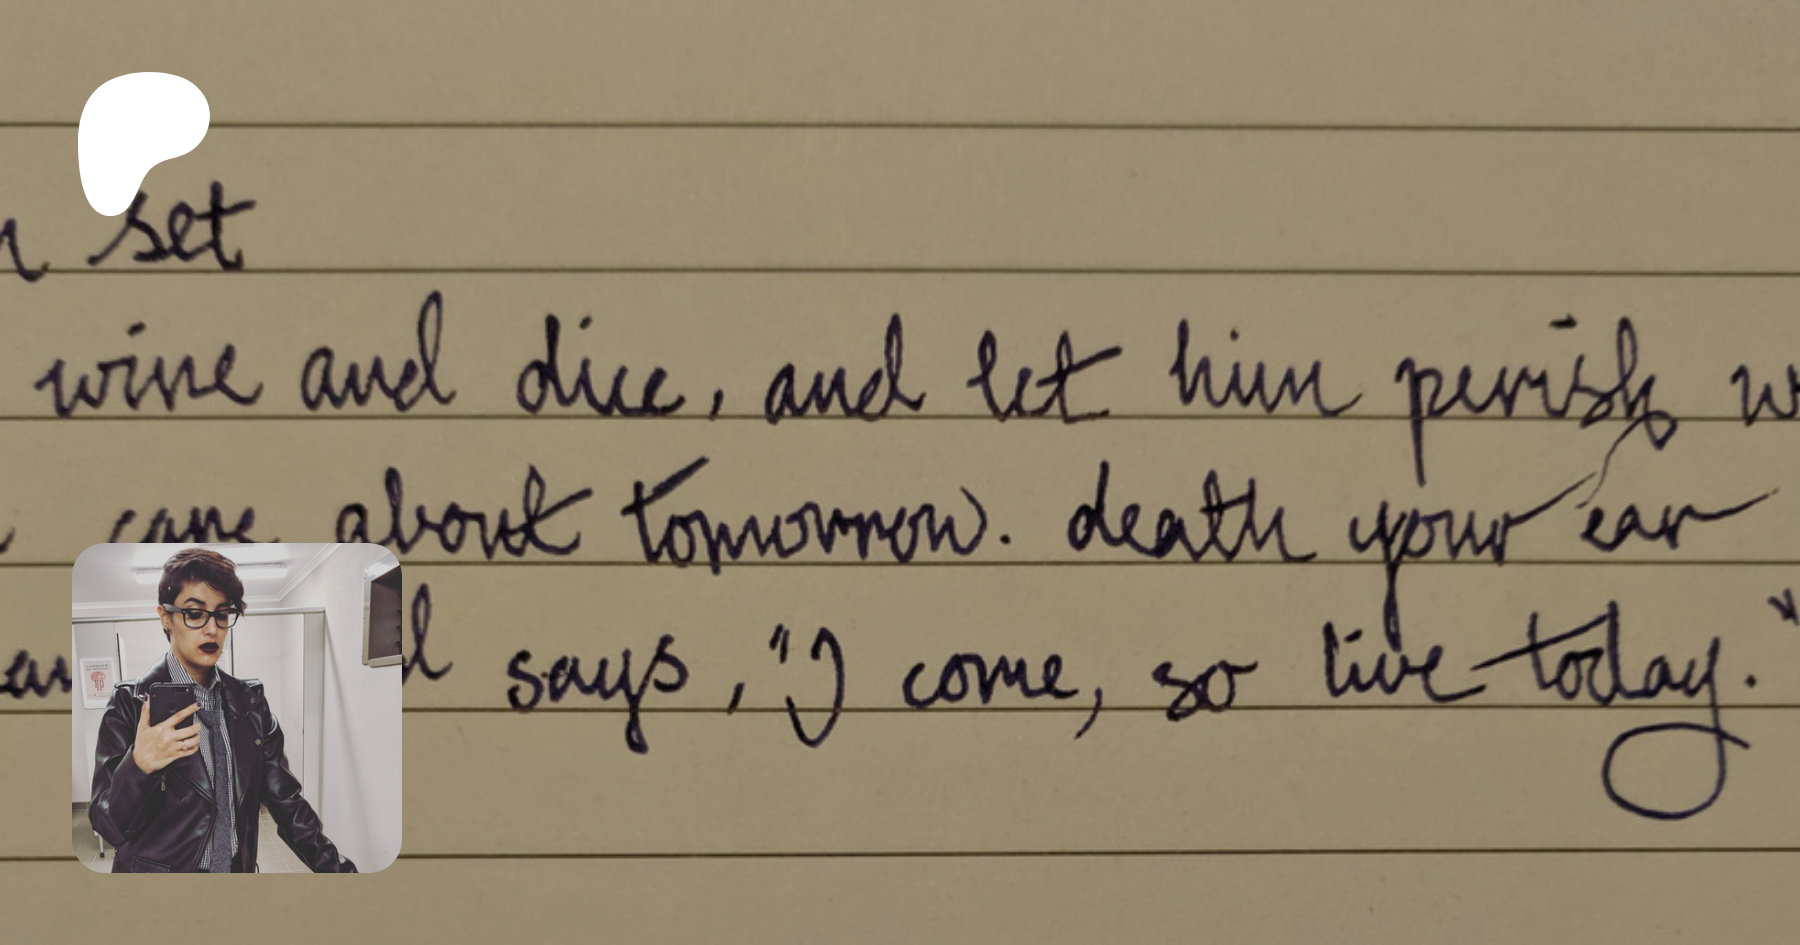 set
wine and dice, and let him perish w
care about tomorrow. death your ear
says, "I come, so live today."